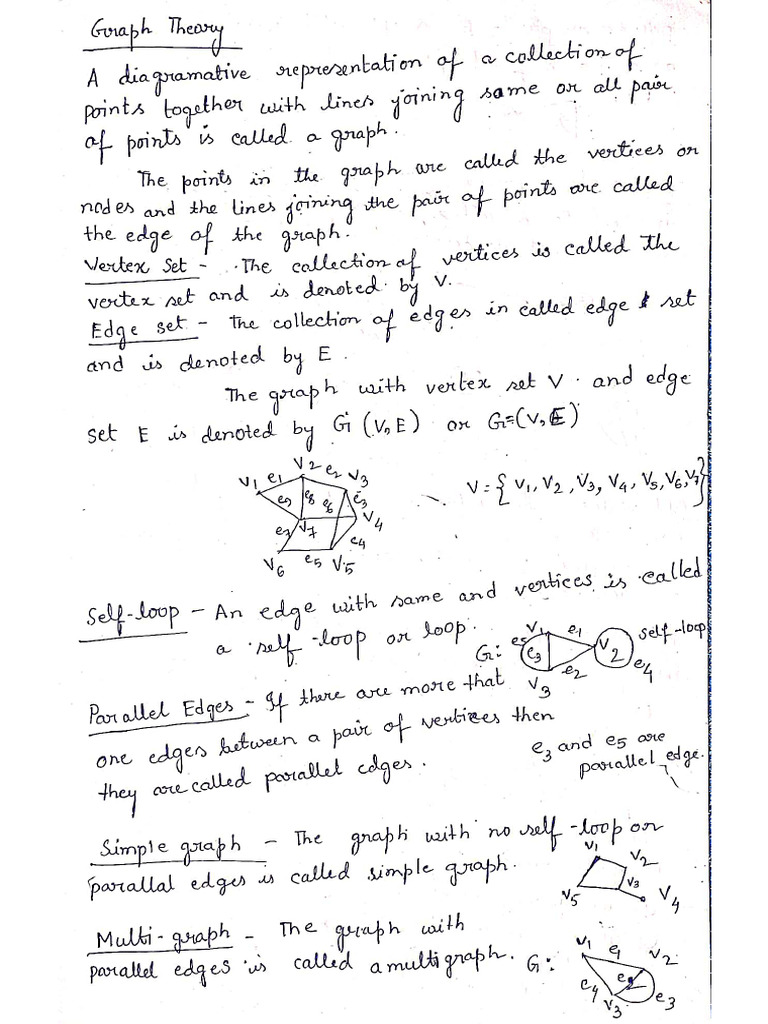 Graph Theory
A diagramative representation of a collection of
points together with lines joining some or all pair
of points is called a graph.
The points in the graph are called the vertices or
nodes and the lines joining the pair of points are called
the edge of the graph.
Vertex Set - The collection of vertices is called the
vertex set and is denoted by V.
Edge set - The collection of edges in called edge set
and is denoted by E.
The graph with vertex set V and edge
set E is denoted by G (V, E) or G=(V, E)
V1 e1 V2 e2 V3
e9 e8 e6 e3
V = { V1, V2, V3, V4, V5, V6, V7}
e7 V7 e4 V4
V6 e5 V5
Self-loop - An edge with same end vertices is called
a self-loop or loop.
G: e5 V1 e1 e3 V2 self-loop
V3 e2 e4
Parallel Edges - If there are more that
one edges between a pair of vertices then
they are called parallel edges.
e3 and e5 are
parallel edge.
Simple graph - The graph with no self-loop or
parallal edges is called simple graph.
V1 V2
V5 V3 V4
Multi-graph - The graph with
parallel edges is called a multigraph.
G: V1 e1 V2
e4 e2 e3
V3